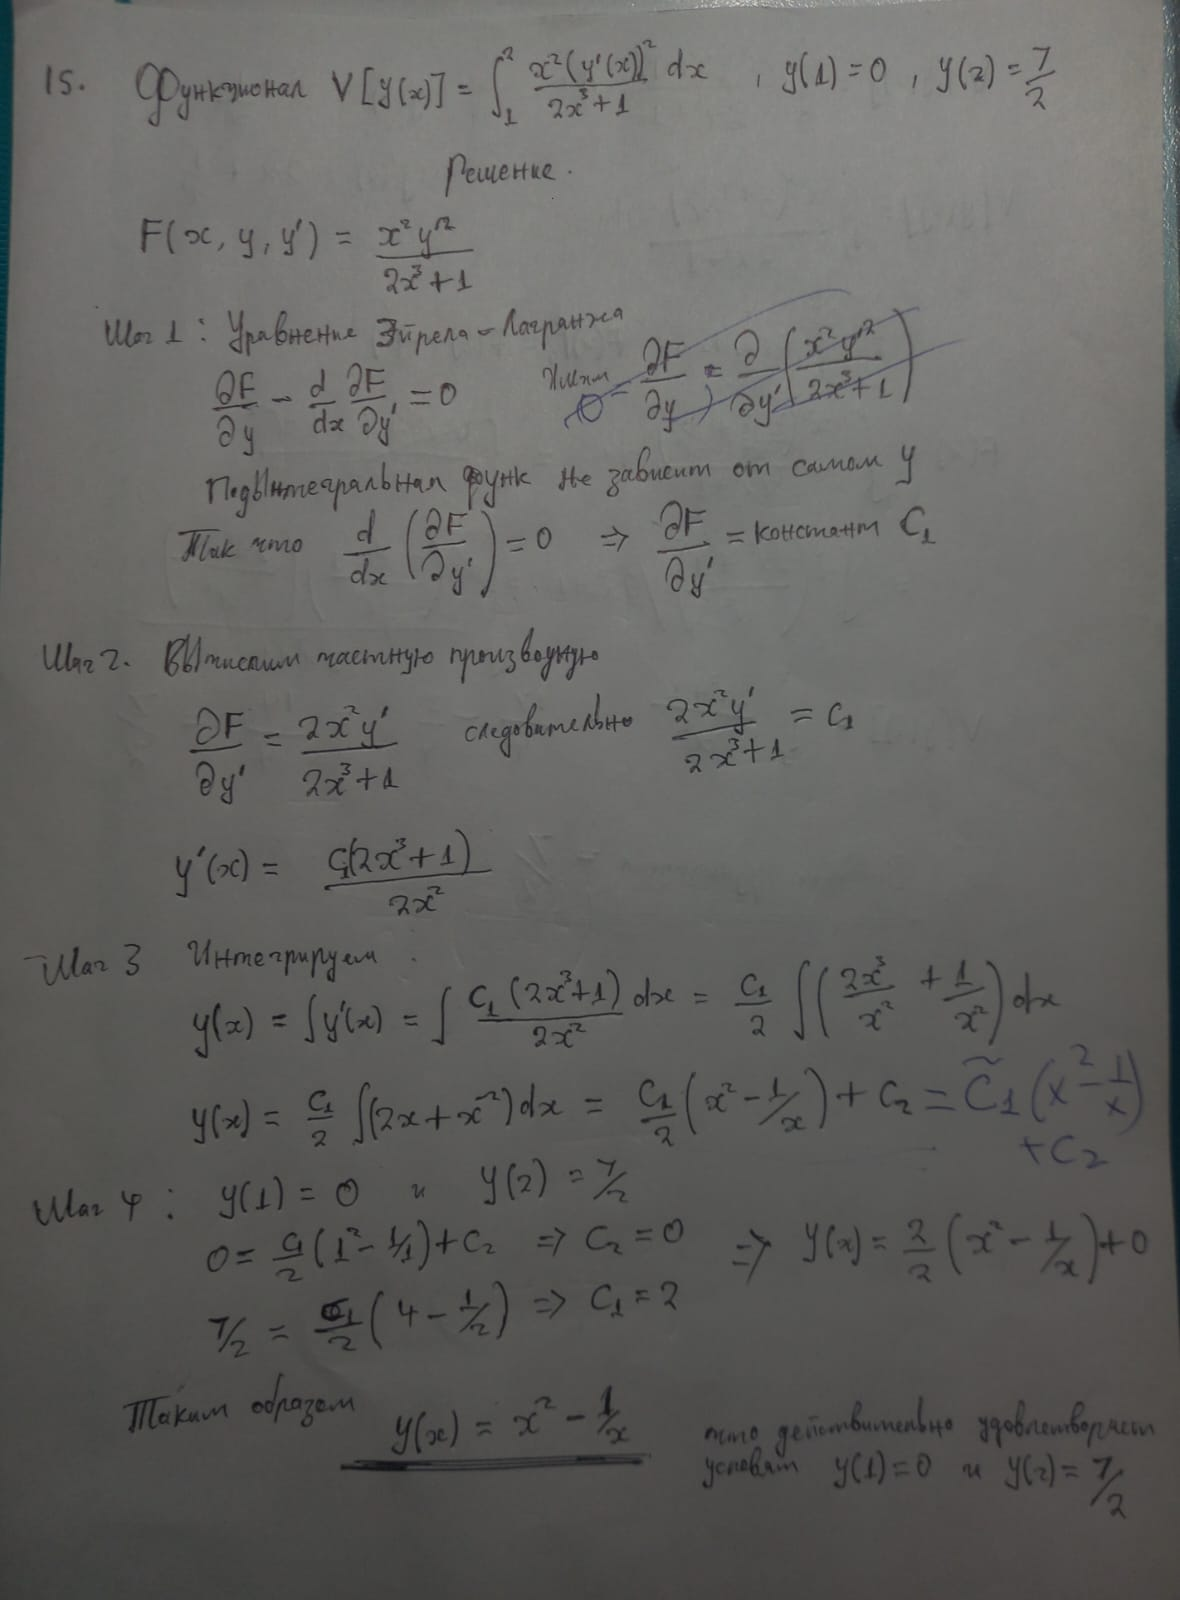 15. Функционал V[y(x)] = ∫₁² x²(y'(x))² dx / (2x³+1) , y(1)=0 , y(2)=7/2
Решение.
F(x, y, y') = x²y'² / (2x³+1)
Шаг 1: Уравнение Эйрела-Лагранжа
∂F/∂y - d/dx ∂F/∂y' = 0
∂F/∂y = ∂/∂y' (x²y'² / (2x³+1))
Подынтегральная функ не зависит от самом y
Так что d/dx (∂F/∂y') = 0 => ∂F/∂y' = констант C₁
Шаг 2. Вычислим частную производную
∂F/∂y' = 2x²y' / (2x³+1) следовательно 2x²y' / (2x³+1) = C₁
y'(x) = C₁(2x³+1) / 2x²
Шаг 3 Интегрируем.
y(x) = ∫y'(x) = ∫ C₁(2x³+1) / 2x² dx = C₁/2 ∫(2x³/x² + 1/x²) dx
y(x) = C₁/2 ∫(2x + x⁻²)dx = C₁/2 (x² - 1/x) + C₂ = C̃₁(x² - 1/x)
+C₂
Шаг 4: y(1) = 0 и y(2) = 7/2
0 = C₁/2 (1² - 1/1) + C₂ => C₂ = 0 => y(x) = 2/2 (x² - 1/x) + 0
7/2 = C₁/2 (4 - 1/2) => C₁ = 2
Таким образом y(x) = x² - 1/x что действительно удовлетворяет
условиям y(1)=0 и y(2)=7/2